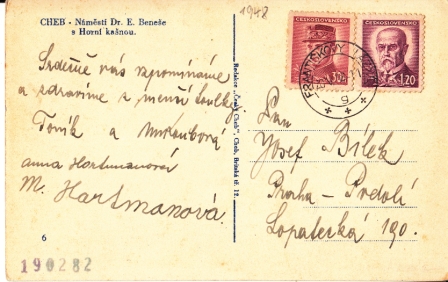 CHEB - Náměstí Dr. E. Beneše
s Horní kašnou.
Srdečně vás vzpomínáme
a zdravíme z menší toulky
Toník a
Anna Hartmanová
M. Hartmanová.
6
190282
Redakce „Český Cheb“, Cheb, Brínská tř. 12.
1948
ČESKOSLOVENSKO
30
ČESKOSLOVENSKO
1.20
FRANTIŠKOVY LÁZNĚ
Pan
Josef Bílek
Praha - Podolí
Lopatecká 190.